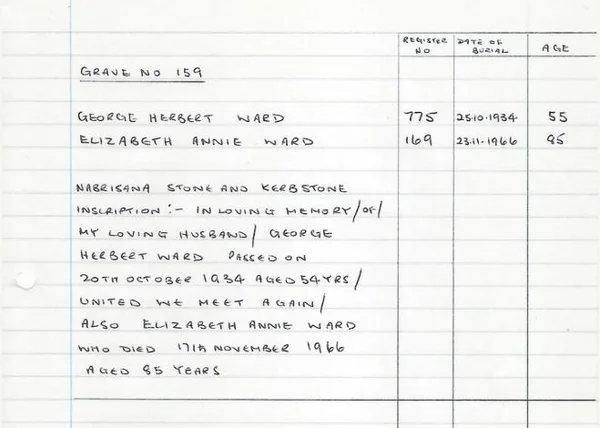 REGISTER NO DATE OF BURIAL AGE
GRAVE NO 159
GEORGE HERBERT WARD 775 25.10.1934 55
ELIZABETH ANNIE WARD 169 23.11.1966 85
NABRISANA STONE AND KERBSTONE
INSCRIPTION :- IN LOVING MEMORY/OF/
MY LOVING HUSBAND/ GEORGE
HERBERT WARD PASSED ON
20TH OCTOBER 1934 AGED 54 YRS/
UNITED WE MEET AGAIN/
ALSO ELIZABETH ANNIE WARD
WHO DIED 17th NOVEMBER 1966
AGED 85 YEARS